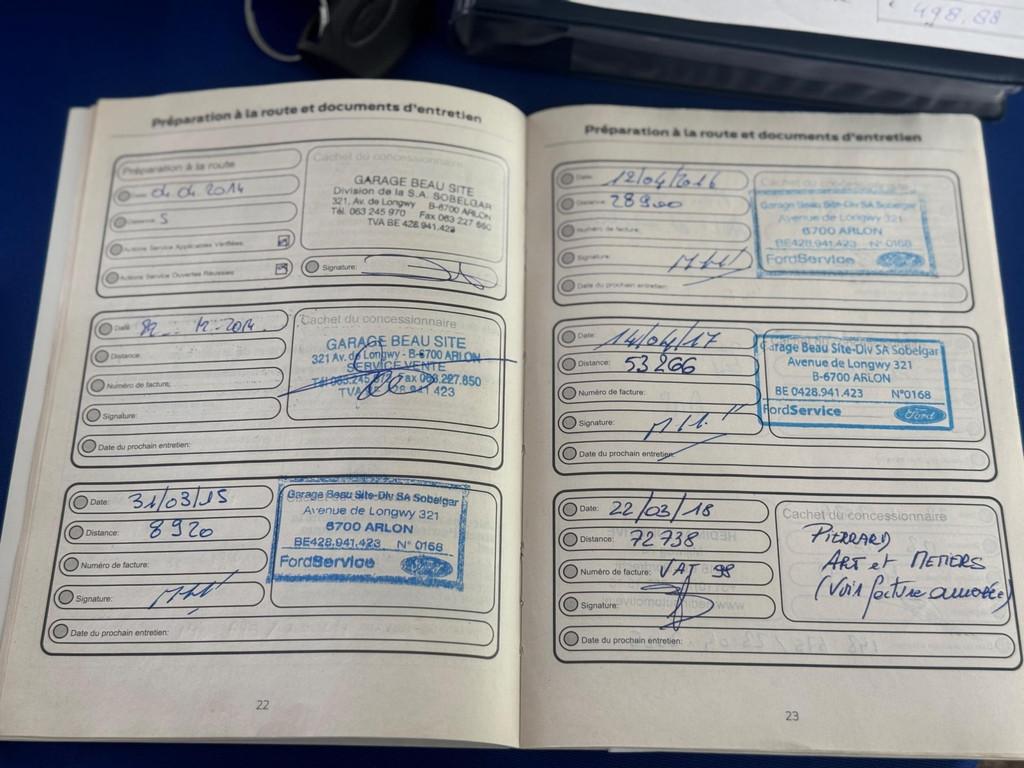 498.88
Préparation à la route et documents d'entretien
Préparation à la route
Cachet du concessionnaire
04.04.2014
Distance: 5
Actions Service Applicables Vérifiées
Actions Service Ouvertes Réussies
GARAGE BEAU SITE
Division de la S.A. SOBELGAR
321, Av. de Longwy B-6700 ARLON
Tél. 063 245 970 Fax 063 227 650
TVA BE 428.941.423
Signature:
Date: 12.2014
Distance:
Numéro de facture:
Signature:
Date du prochain entretien:
Cachet du concessionnaire
GARAGE BEAU SITE
321 Av. de Longwy - B-6700 ARLON
SERVICE VENTE
Tél 063.245.970 Fax 063.227.650
TVA BE 428 941 423
Date: 31/03/15
Distance: 8920
Numéro de facture:
Signature:
Date du prochain entretien:
Garage Beau Site-Div SA Sobelgar
Avenue de Longwy 321
6700 ARLON
BE428.941.423 N° 0168
FordService
22
Préparation à la route et documents d'entretien
Date: 12/04/2016
Distance: 28900
Numéro de facture:
Signature:
Date du prochain entretien:
Cachet du concessionnaire
Garage Beau Site-Div SA Sobelgar
Avenue de Longwy 321
6700 ARLON
BE428.941.423 N° 0168
FordService Ford
Date: 14/04/17
Distance: 53266
Numéro de facture:
Signature:
Date du prochain entretien:
Garage Beau Site-Div SA Sobelgar
Avenue de Longwy 321
B-6700 ARLON
BE 0428.941.423 N°0168
FordService Ford
Date: 22/03/18
Distance: 72738
Numéro de facture: VAT 98
Signature:
Date du prochain entretien:
Cachet du concessionnaire
PIERRARD
ART et METIERS
(Voir facture annexée)
23